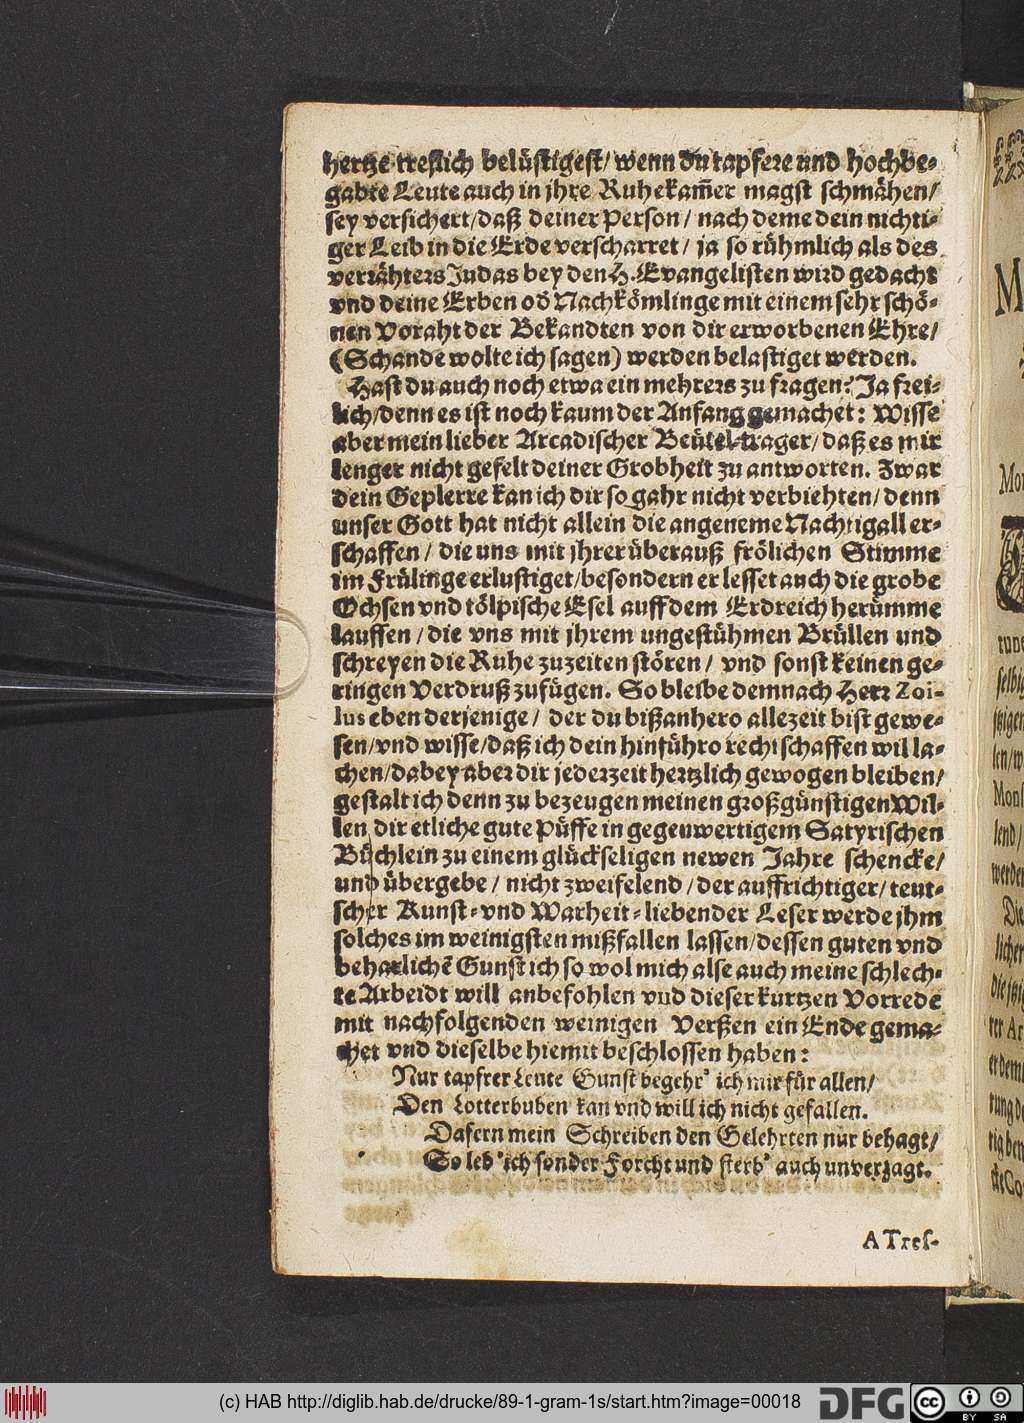 hertze treflich belüstigest/ wenn du tapfere und hochbe-
gabte Leute auch in ihre Ruhekam̃er magst schmähen/
sey versichert/daß deiner Person/ nach deme dein nichti-
ger Leib in die Erde verscharret/ ja so rühmlich als des
verrähters Judas bey den H. Evangelisten wird gedacht
vnd deine Erben od Nachkömlinge mit einem sehr schö-
nen Voraht der Bekandten von dir erworbenen Ehre/
(Schande wolte ich sagen) werden belastiget werden.
Hast du auch noch etwa ein mehrers zu fragen? Ja frei-
lich/denn es ist noch kaum der Anfang gemachet: Wisse
aber mein lieber Arcadischer Beütel-trager/ daß es mir
lenger nicht gefelt deiner Grobheit zu antworten. Zwar
dein Geplerre kan ich dir so gahr nicht verbiehten/ denn
unser Gott hat nicht allein die angeneme Nachtigall er-
schaffen/ die uns mit jhrer überauß frölichen Stimme
im Frülinge erlustiget/besondern er lesset auch die grobe
Ochsen vnd tölpische Esel auff dem Erdreich herümme
lauffen/ die vns mit jhrem ungestühmen Brüllen und
schreyen die Ruhe zuzeiten stören/ vnd sonst keinen ge-
ringen Verdruß zufügen. So bleibe demnach Herr Zoi-
lus eben derjenige/ der du bißanhero allezeit bist gewe-
sen/vnd wisse/daß ich dein hinführo rechtschaffen wil la-
chen/dabey aber dir jederzeit hertzlich gewogen bleiben/
gestalt ich denn zu bezeugen meinen großgünstigen Wil-
len dir etliche gute Püffe in gegenwertigem Satyrischen
Büchlein zu einem glückseligen newen Jahre schencke/
und übergebe/ nicht zweifelend/ der auffrichtiger/ teut-
scher Kunst- vnd Warheit-liebender Leser werde jhm
solches im weinigsten mißfallen lassen/dessen guten vnd
beharlichẽ Gunst ich so wol mich alse auch meine schlech-
te Arbeidt will anbefohlen vnd dieser kurtzen Vorrede
mit nachfolgenden weinigen Verßen ein Ende gema-
chet vnd dieselbe hiemit beschlossen haben:
Nur tapfrer Leute Gunst begehr' ich mir für allen/
Den Lotterbuben kan vnd will ich nicht gefallen.
Dafern mein Schreiben den Gelehrten nur behagt/
So leb' ich sonder Forcht und sterb' auch unverzagt.
A Tres-
(c) HAB http://diglib.hab.de/drucke/89-1-gram-1s/start.htm?image=00018
DFG
cc
BY SA